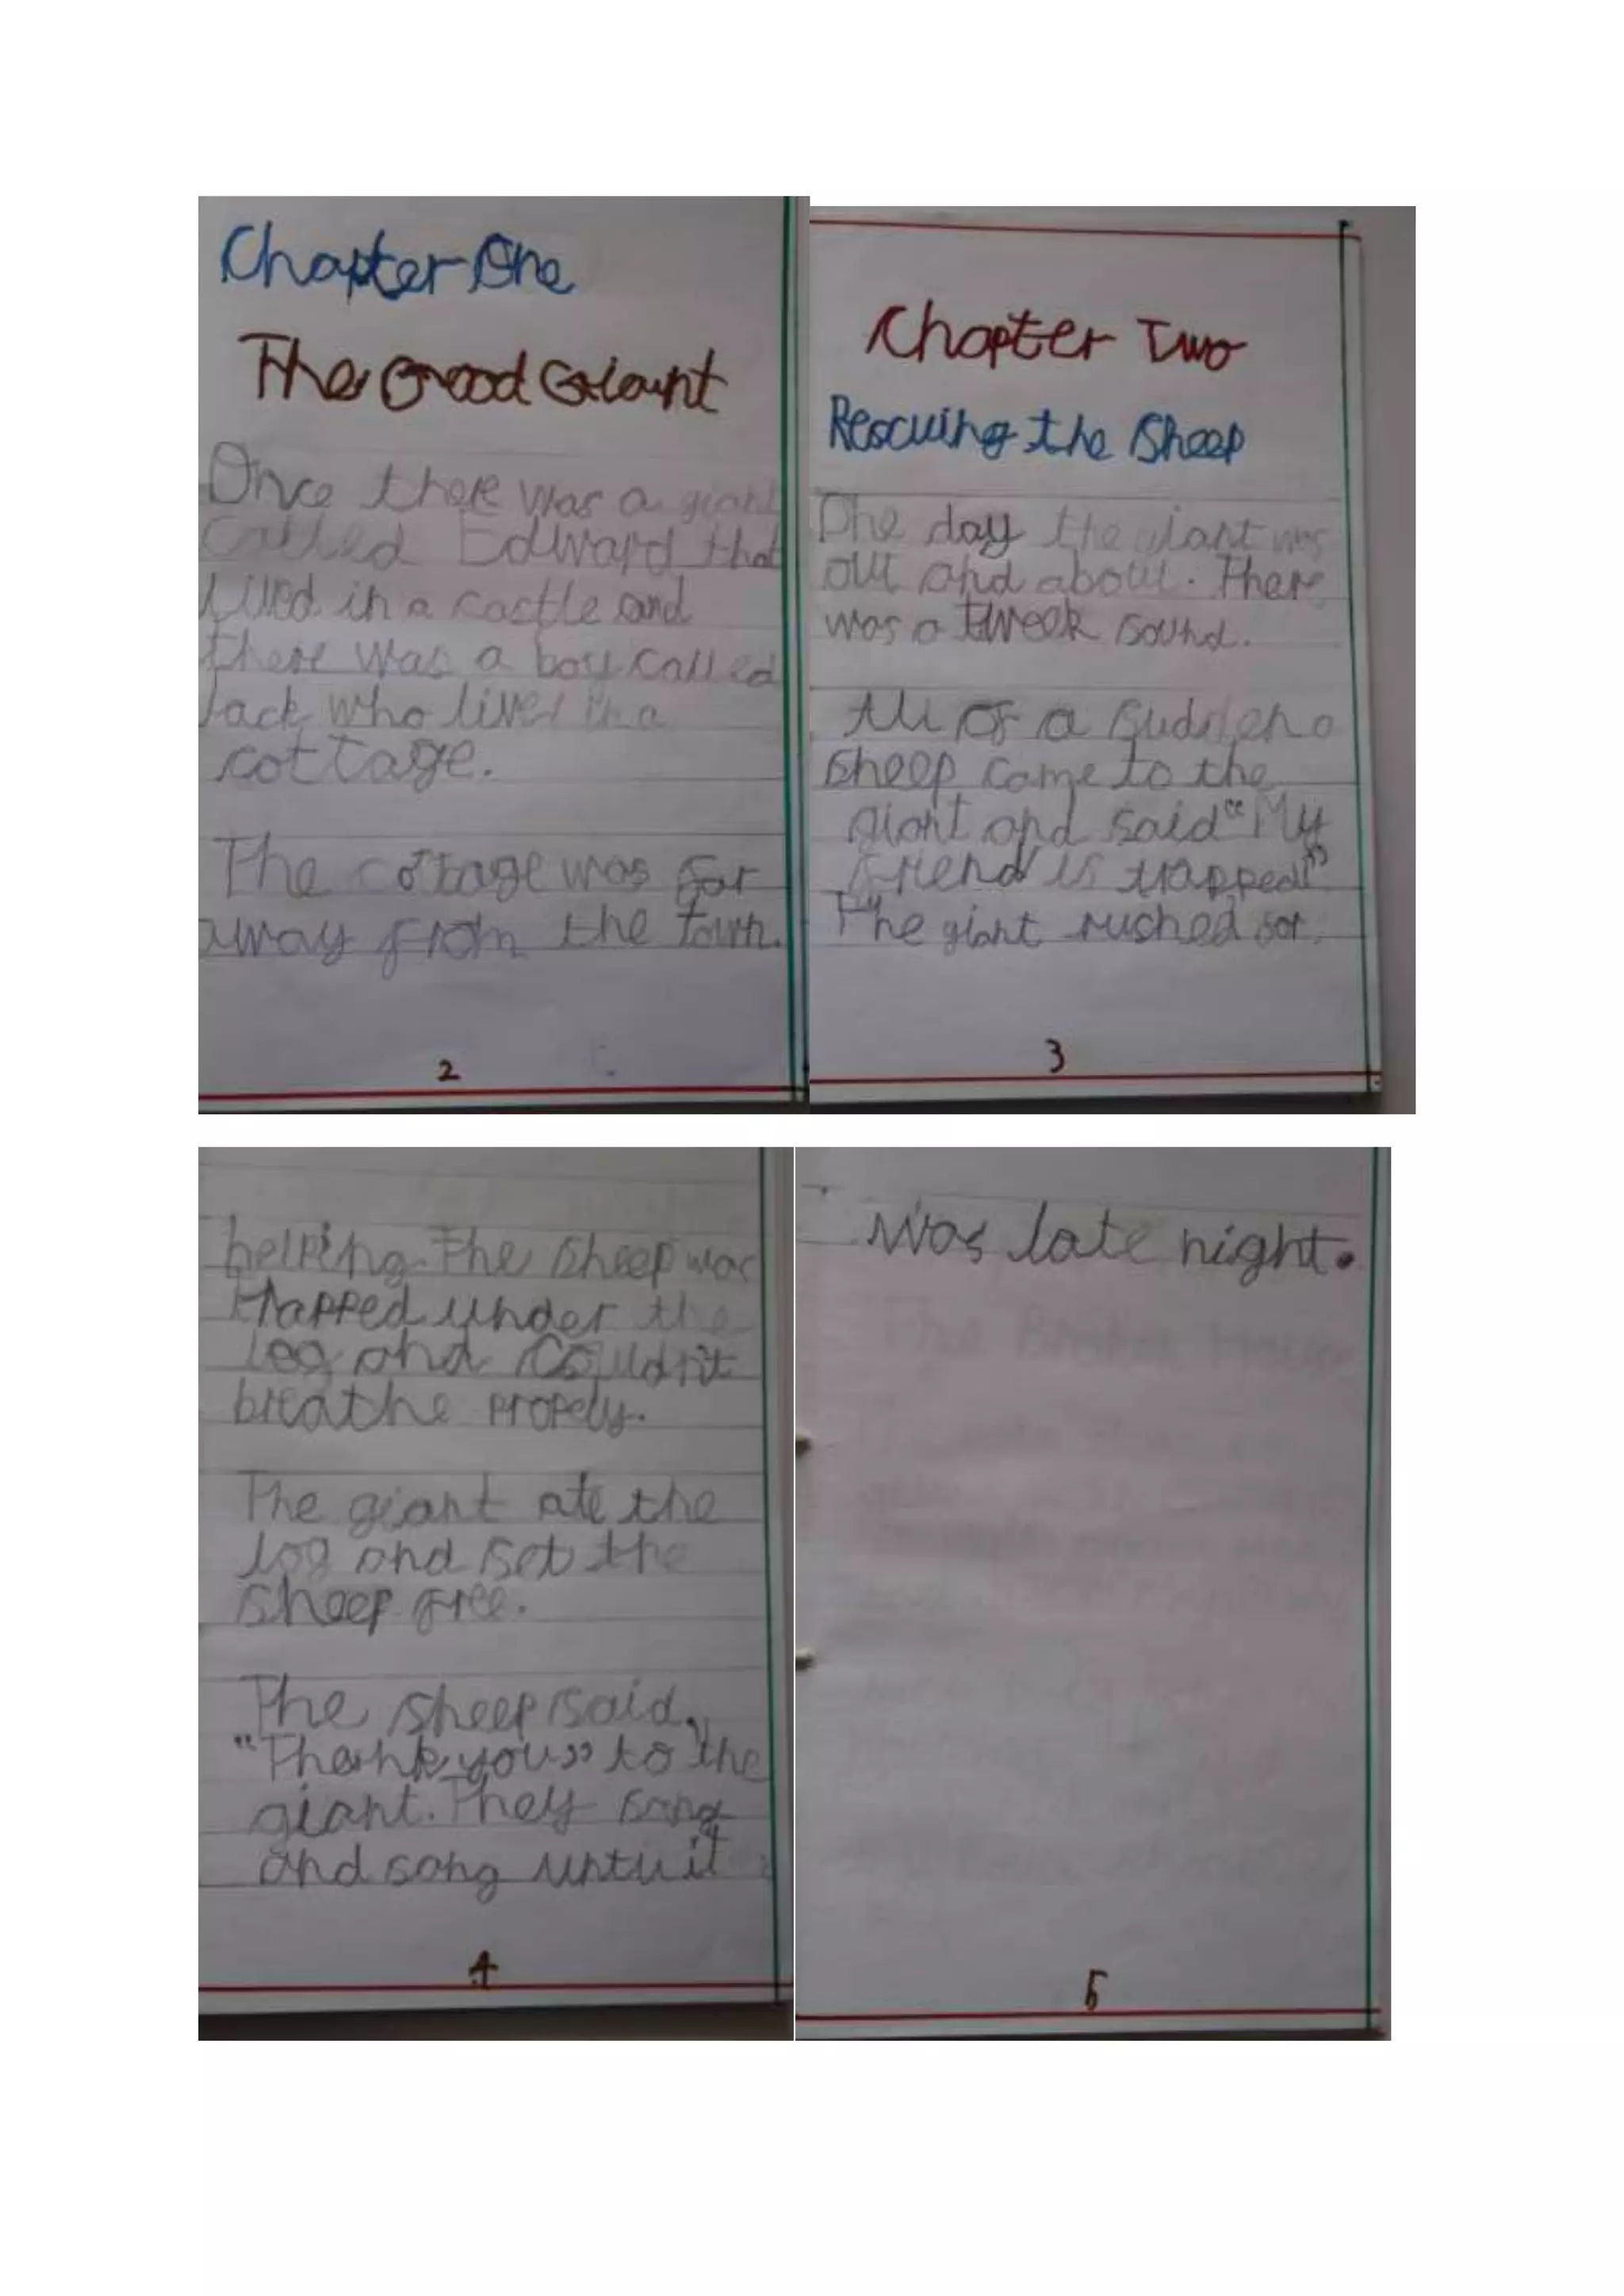 Chapter One
The Good Giant
Once there was a giant
called Edward that
lived in a castle and
there was a boy called
Jack who lived in a
cottage.
The cottage was far
away from the town.
2
Chapter Two
Rescuing the Sheep
One day the giant was
out and about. There
was a tweek sound.
All of a sudden a
sheep came to the
giant and said "My
friend is trapped!"
The giant rushed for
3
helping. The sheep was
trapped under the
log and couldn't
breathe propely.
The giant ate the
log and set the
sheep free.
The sheep said,
"Thank you" to the
giant. They sang
and song until it
4
was late night.
5